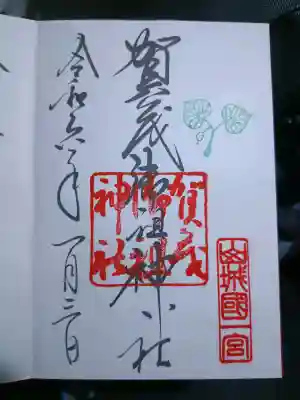 山城國
一宮
賀茂御祖神社
賀茂
御祖
神社
令和六年一月三日